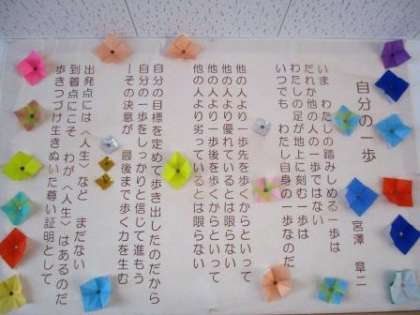 自分の一歩
宮澤 章二
いま わたしの踏みしめる一歩は
だれか他の人の一歩ではない
わたしの足が地上に刻む一歩は
いつでも わたし自身の一歩なのだ
他の人より一歩先を歩くからといって
他の人より優れているとは限らない
他の人より一歩後を歩くからといって
他の人より劣っているとは限らない
自分の目標を定めて歩き出したのだから
自分の一歩をしっかりと信じて進もう
―その決意が 最後まで歩く力を生む
出発点には〈人生〉など まだない
到着点にこそ わが〈人生〉はあるのだ
歩きつづけ生きぬいた尊い証明として